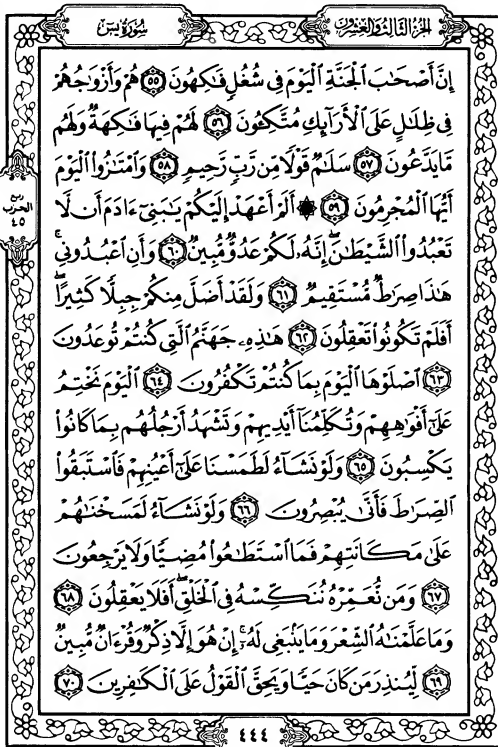 الجزء الثالث والعشرون
سورة يس
إِنَّ أَصْحَٰبَ ٱلْجَنَّةِ ٱلْيَوْمَ فِى شُغُلٍ فَٰكِهُونَ ۝٥٥ هُمْ وَأَزْوَٰجُهُمْ
فِى ظِلَٰلٍ عَلَى ٱلْأَرَآئِكِ مُتَّكِـُٔونَ ۝٥٦ لَهُمْ فِيهَا فَٰكِهَةٌ وَلَهُم
مَّا يَدَّعُونَ ۝٥٧ سَلَٰمٌ قَوْلًا مِّن رَّبٍّ رَّحِيمٍ ۝٥٨ وَٱمْتَٰزُوا۟ ٱلْيَوْمَ
أَيُّهَا ٱلْمُجْرِمُونَ ۝٥٩ ۞ أَلَمْ أَعْهَدْ إِلَيْكُمْ يَٰبَنِىٓ ءَادَمَ أَن لَّا
تَعْبُدُوا۟ ٱلشَّيْطَٰنَ ۖ إِنَّهُۥ لَكُمْ عَدُوٌّ مُّبِينٌ ۝٦٠ وَأَنِ ٱعْبُدُونِى ۚ
هَٰذَا صِرَٰطٌ مُّسْتَقِيمٌ ۝٦١ وَلَقَدْ أَضَلَّ مِنكُمْ جِبِلًّا كَثِيرًا ۖ
أَفَلَمْ تَكُونُوا۟ تَعْقِلُونَ ۝٦٢ هَٰذِهِۦ جَهَنَّمُ ٱلَّتِى كُنتُمْ تُوعَدُونَ
۝٦٣ ٱصْلَوْهَا ٱلْيَوْمَ بِمَا كُنتُمْ تَكْفُرُونَ ۝٦٤ ٱلْيَوْمَ نَخْتِمُ
عَلَىٰٓ أَفْوَٰهِهِمْ وَتُكَلِّمُنَآ أَيْدِيهِمْ وَتَشْهَدُ أَرْجُلُهُم بِمَا كَانُوا۟
يَكْسِبُونَ ۝٦٥ وَلَوْ نَشَآءُ لَطَمَسْنَا عَلَىٰٓ أَعْيُنِهِمْ فَٱسْتَبَقُوا۟
ٱلصِّرَٰطَ فَأَنَّىٰ يُبْصِرُونَ ۝٦٦ وَلَوْ نَشَآءُ لَمَسَخْنَٰهُمْ
عَلَىٰ مَكَانَتِهِمْ فَمَا ٱسْتَطَٰعُوا۟ مُضِيًّا وَلَا يَرْجِعُونَ
۝٦٧ وَمَن نُّعَمِّرْهُ نُنَكِّسْهُ فِى ٱلْخَلْقِ ۖ أَفَلَا يَعْقِلُونَ ۝٦٨
وَمَا عَلَّمْنَٰهُ ٱلشِّعْرَ وَمَا يَنۢبَغِى لَهُۥٓ ۚ إِنْ هُوَ إِلَّا ذِكْرٌ وَقُرْءَانٌ مُّبِينٌ
۝٦٩ لِّيُنذِرَ مَن كَانَ حَيًّا وَيَحِقَّ ٱلْقَوْلُ عَلَى ٱلْكَٰفِرِينَ ۝٧٠
ربع
الحزب
٤٥
٤٤٤